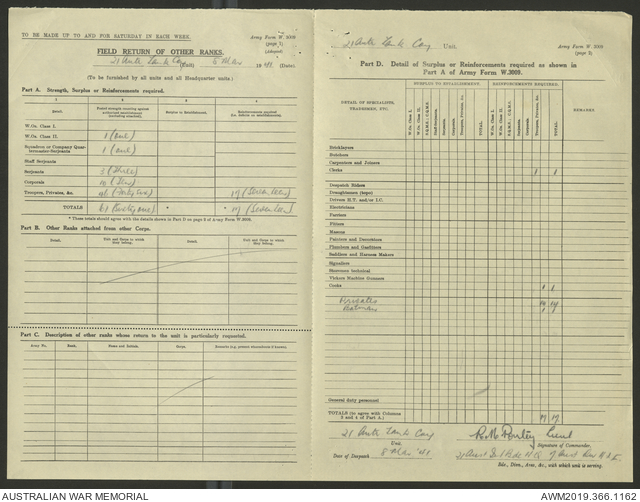 TO BE MADE UP TO AND FOR SATURDAY IN EACH WEEK.
Army Form W. 3009
(page 1)
(Adapted)
FIELD RETURN OF OTHER RANKS.
21 Anti Tank Coy (Unit) 8 Mar 1941 (Date)
(To be furnished by all units and all Headquarter units.)
Part A. Strength, Surplus or Reinforcements required.
1 2 3 4
Detail.
Surplus to Establishment.
W.Os. Class I.
W.Os. Class II. 1 (One)
Squadron or Company Quarter-master-Serjeants 1 (one)
Staff Serjeants
Serjeants 3 (Three)
Corporals 10 (Ten)
Troopers, Privates, &c. 46 (Forty six) 17 (Seventeen)
TOTALS 61 (Sixty one) * * 17 (Seventeen)
* These totals should agree with the details shown in Part D on page 2 of Army Form W. 3009.
Part B. Other Ranks attached from other Corps.
Detail. Unit and Corps to which they belong. Detail. Unit and Corps to which they belong.
Part C. Description of other ranks whose return to the unit is particularly requested.
Army No. Rank. Name and Initials. Corps.
21 Anti Tank Coy Unit.
Army Form W. 3009
(page 2)
Part D. Detail of Surplus or Reinforcements required as shown in
Part A of Army Form W.3009.
SURPLUS TO ESTABLISHMENT. REINFORCEMENTS REQUIRED.
DETAIL OF SPECIALISTS, TRADESMEN, ETC.
W.Os. Class I. W.Os. Class II. S.Q.M.S.; C.Q.M.S. Staff-Serjeants Serjeants Corporals Troopers, Privates, &c. TOTAL W.Os. Class I. W.Os. Class II. S.Q.M.S.; C.Q.M.S. Serjeants Corporals Troopers, Privates, &c. TOTAL REMARKS
Bricklayers
Butchers
Carpenters and Joiners
Clerks 1 1
Despatch Riders
Draughtsmen (topo)
Drivers H.T. and/or I.C.
Electricians
Farriers
Fitters
Masons
Painters and Decorators
Plumbers and Gasfitters
Saddlers and Harness Makers
Signallers
Storemen technical
Vickers Machine Gunners
Cooks 1 1
Privates
Batmen
General duty personnel
TOTALS (to agree with Columns 3 and 4 of Part A.) 17 17
21 Anti Tank Coy
Unit
Lieut
Signature of Commander.
Date of Despatch 8 Mar '41
Bde., Divn., Area, &c., with which unit is serving.
AUSTRALIAN WAR MEMORIAL
AWM2019.366.1162